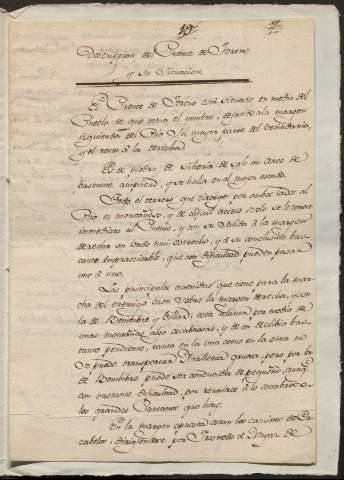 Descripcion del Puente de Toreno
y su Situacion
El Puente de Toreno está situado en medio del
Pueblo de que toma el nombre, dejando á la margen
izquierda del Rio la mayor parte del Vecindario,
y el resto á la derecha.
Es de piedra de Silleria de solo un Arco de
bastante amplitud, y se halla en el mejor estado.
Todo el terreno que circuye por ambos lados al
Rio es montañoso, y de dificil acceso, solo se le conoce
inmediato al Puente, y con su salida á la margen
derecha un bado mui estrecho, y á su conclusion bas-
tante impracticable, que con dificultad pueden pasar
uno á uno.
Las principales avenidas que tiene para la mar-
cha del enemigo caen sobre la margen derecha, y son
la de Bembibre y Villar; esta ultima por medio de
unas montañas algo escabrosas, y de un declibio bas-
tante pendiente, tanto en la una como en la otra no
se puede transportar Artilleria gruesa, pero por la
de Bembibre puede ser conducida de pequeño, aunq.
con bastante dificultad, por reunirse á lo escabroso
los grandes Pantanos que hay.
En la margen opuesta estan los caminos de Ca-
cabelos, dirigiendose por